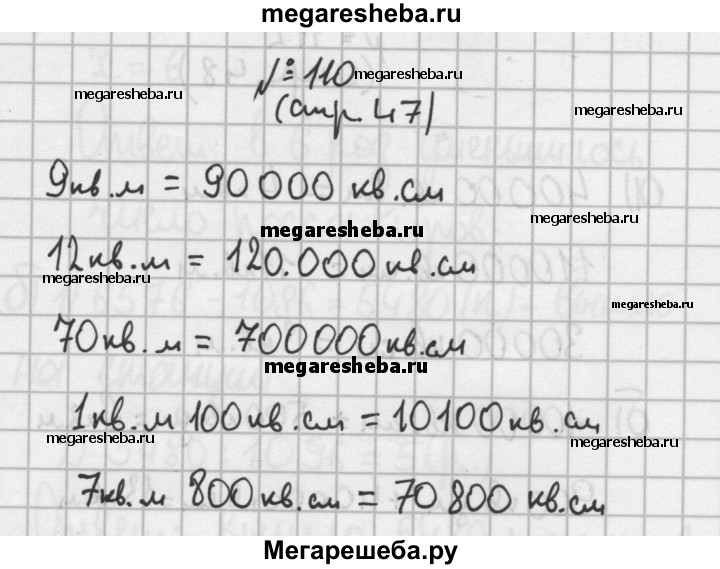 megaresheba.ru
№ 110 megaresheba.ru
megaresheba.ru
(стр. 47) megaresheba.ru
9кв.м = 90 000 кв.см
megaresheba.ru
megaresheba.ru
12кв.м = 120.000кв.см
megaresheba.ru
megaresheba.ru
70кв.м = 700000кв.см
megaresheba.ru
1кв.м 100кв.см = 10100кв.см
megaresheba.ru
megaresheba.ru
7кв.м 800кв.см = 70 800 кв.см
megaresheba.ru
megaresheba.ru
Мегарешеба.ру